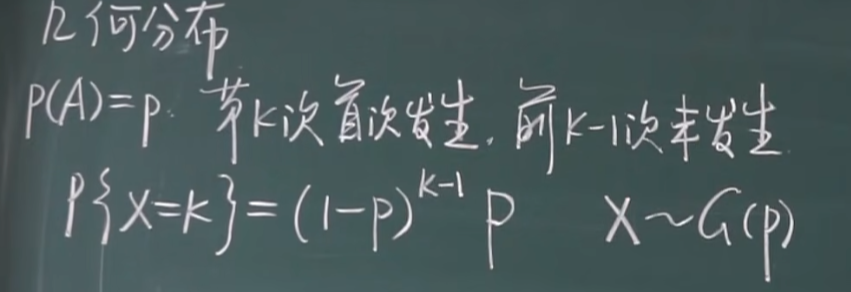 几何分布
P(A)=p. 第K次首次发生, 前K-1次未发生.
P{X=K}=(1-p)^{K-1} p X~G(p)